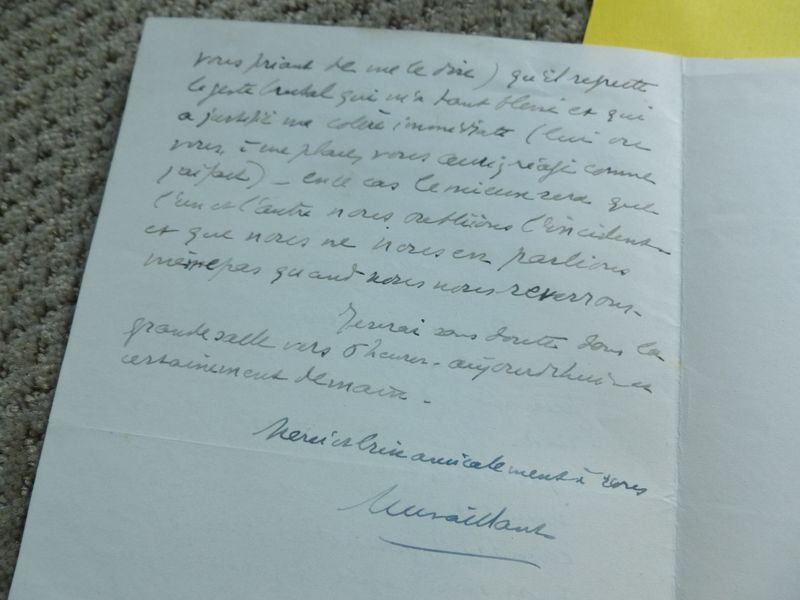 vous priant de me le dire) qu'il regrette
le geste brutal qui m'a tant blessé et qui
a justifié ma colère immédiate (lui ou
vous, à ma place, vous auriez réagi comme
j'ai fait) - en ce cas le mieux sera que
l'un et l'autre nous oubliions l'incident -
et que nous ne nous en parlions
même pas quand nous nous reverrons -
Je serai sans doute dans la
grande salle vers 6 heures - aujourd'hui et
certainement demain -
Merci et bien amicalement à vous